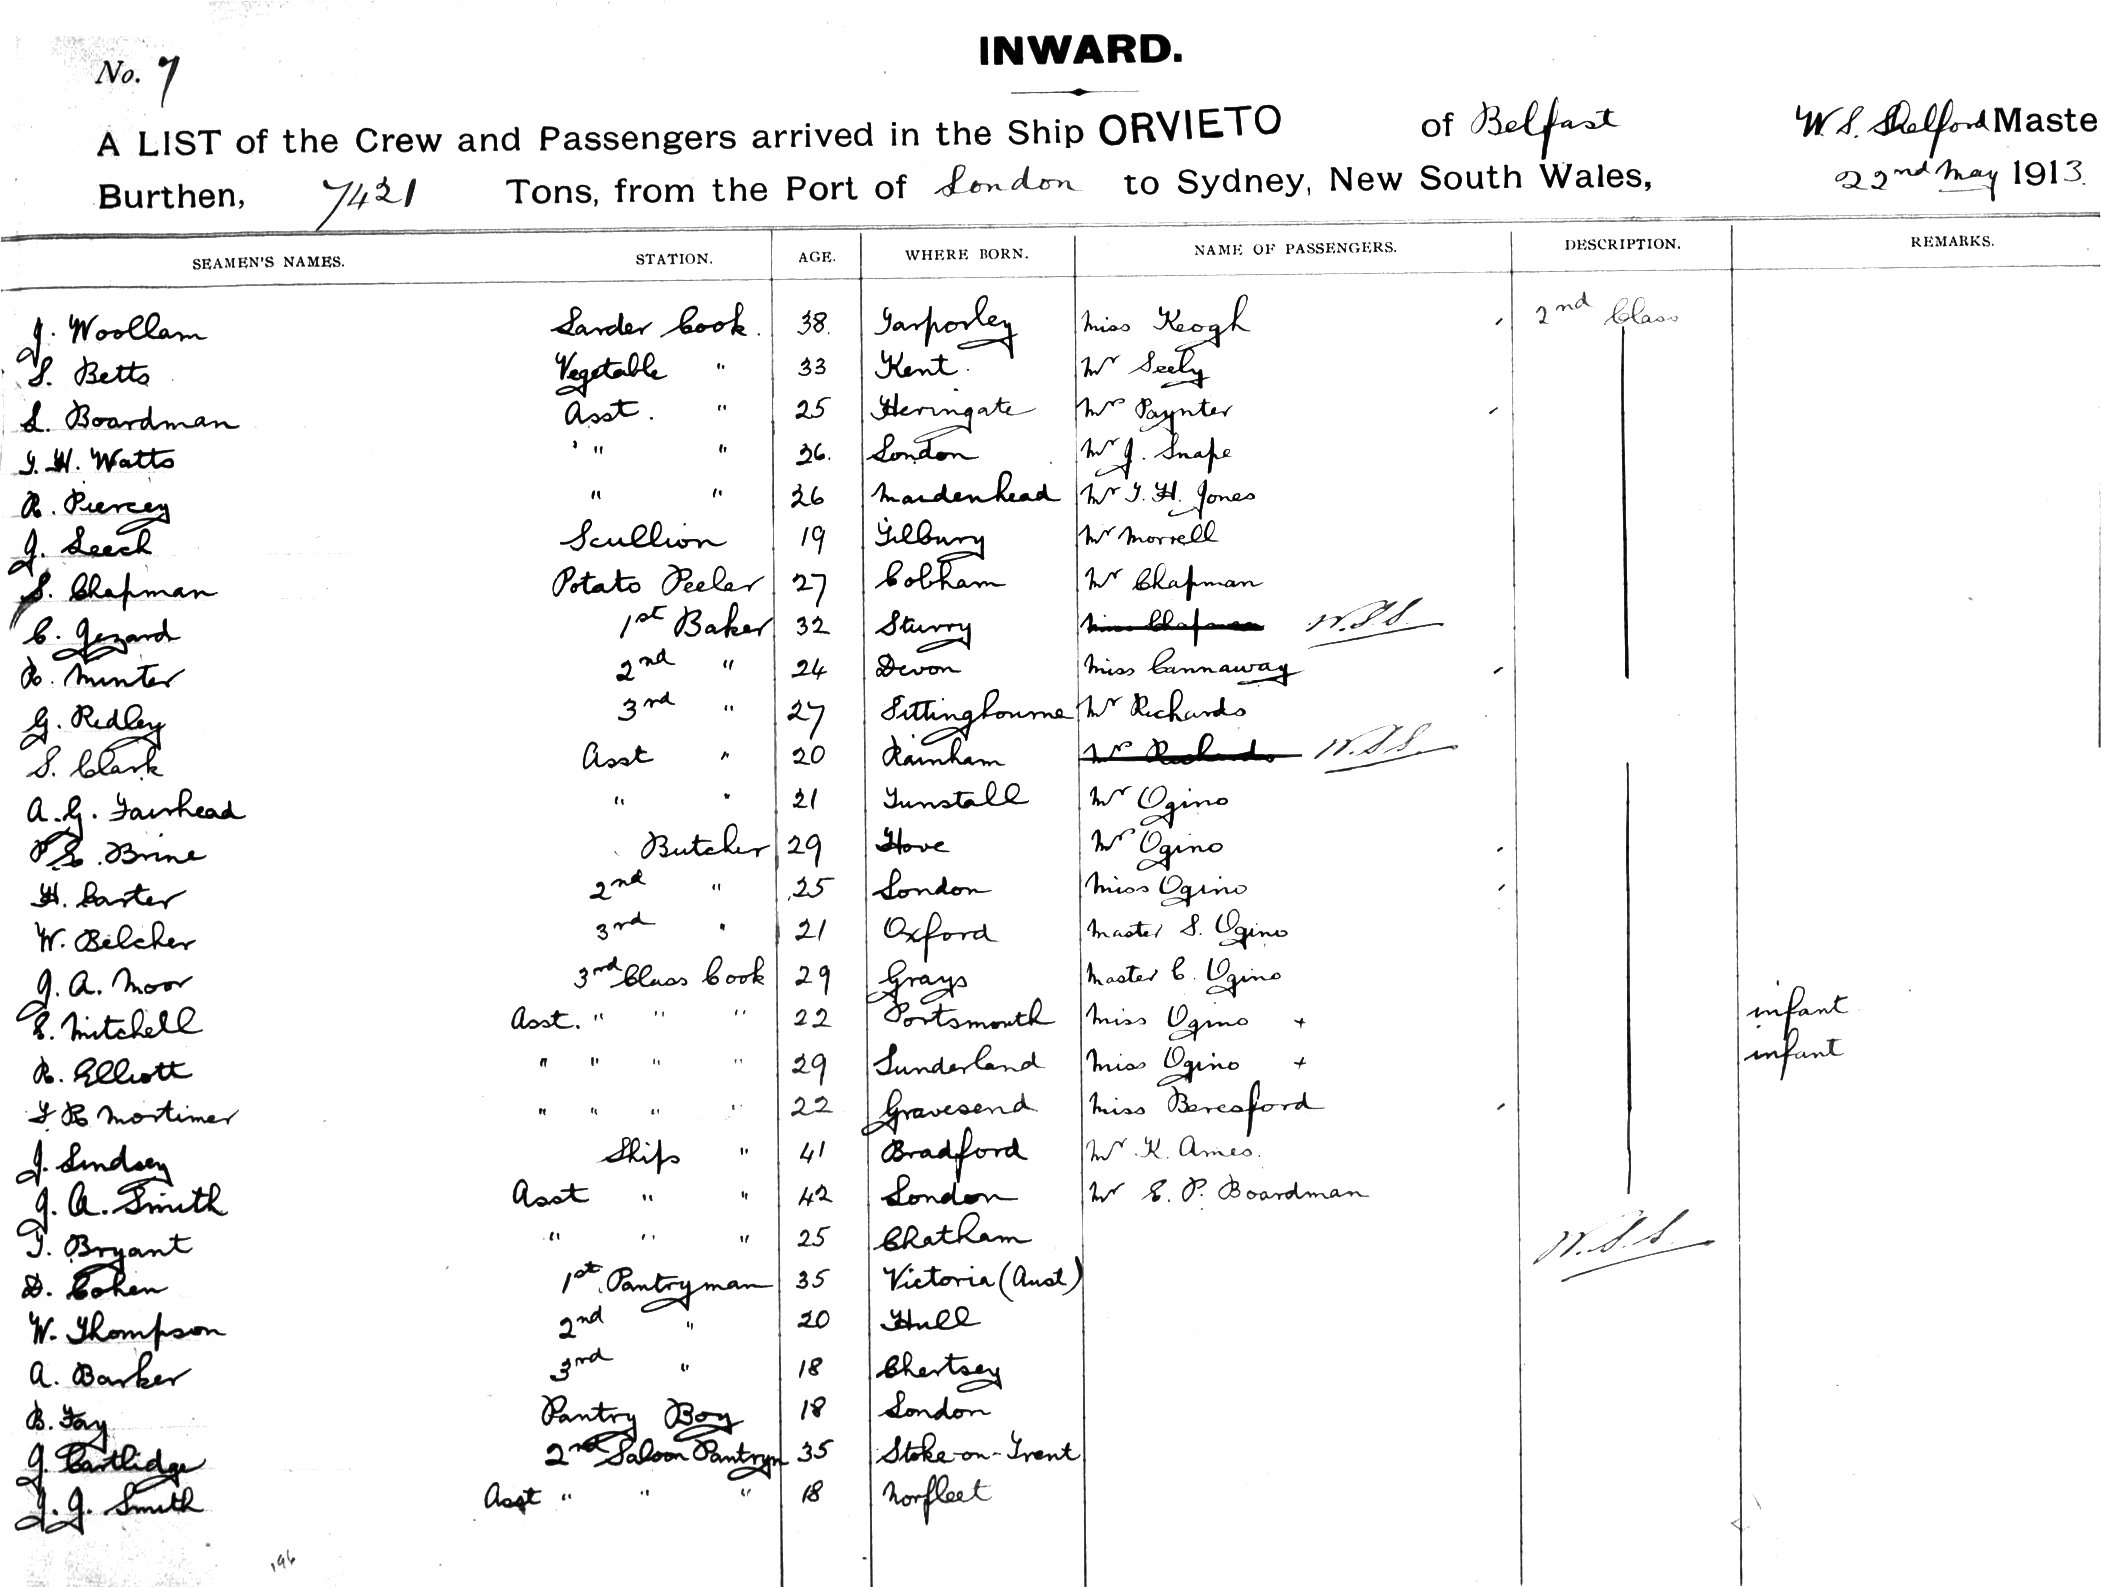 INWARD.
No. 7
A LIST of the Crew and Passengers arrived in the Ship ORVIETO of Belfast W. S. Shelford Maste
Burthen, 7421 Tons, from the Port of London to Sydney, New South Wales, 22nd May 1913.
SEAMEN'S NAMES. STATION. AGE. WHERE BORN. NAME OF PASSENGERS. DESCRIPTION. REMARKS.
J. Woollam Larder Cook. 38. Tarporley Miss Keogh 2nd Class
S. Betts Vegetable " 33 Kent. Mr Seely
L. Boardman Asst. " 25 Heringate Mr Paynter
T. H. Watts " " 26. London Mr J. Snape
R. Piercey " " 26 Maidenhead Mr T. H. Jones
J. Leech Scullion 19 Tilbury Mr Morrell
S. Chapman Potato Peeler 27 Cobham Mr Chapman
C. Gezard 1st Baker 32 Sturry Miss Chapman W.S.S.
R. Minter 2nd " 24 Devon Miss Cannaway
G. Redley 3rd " 27 Sittingbourne Mr Richards
S. Clark Asst " 20 Rainham Mr Richards W.S.S.
A. G. Fairhead " " 21 Tunstall Mr Ogino
P. E. Brine Butcher 29 Hove Mr Ogino
H. Carter 2nd " 25 London Miss Ogino
W. Belcher 3rd " 21 Oxford Master S. Ogino
J. A. Moor 3rd Class Cook 29 Grays Master C. Ogino
E. Mitchell Asst. " " " 22 Portsmouth Miss Ogino + infant
R. Elliott " " " " 29 Sunderland Miss Ogino + infant
F R Mortimer " " " " 22 Gravesend Miss Beresford
J. Lindsey Ships " 41 Bradford Mr. K. Ames.
J. A. Smith Asst " " 42 London Mr E. P. Boardman
T. Bryant " " " 25 Chatham W.S.S.
D. Cohen 1st Pantryman 35 Victoria (Aust)
W. Thompson 2nd " 20 Hull
A. Barker 3rd " 18 Chertsey
B. Fay Pantry Boy 18 London
J. Cartlidge 2nd Saloon Pantryn 35 Stoke-on-Trent
J. J. Smith Asst " " " 18 Norfleet
196